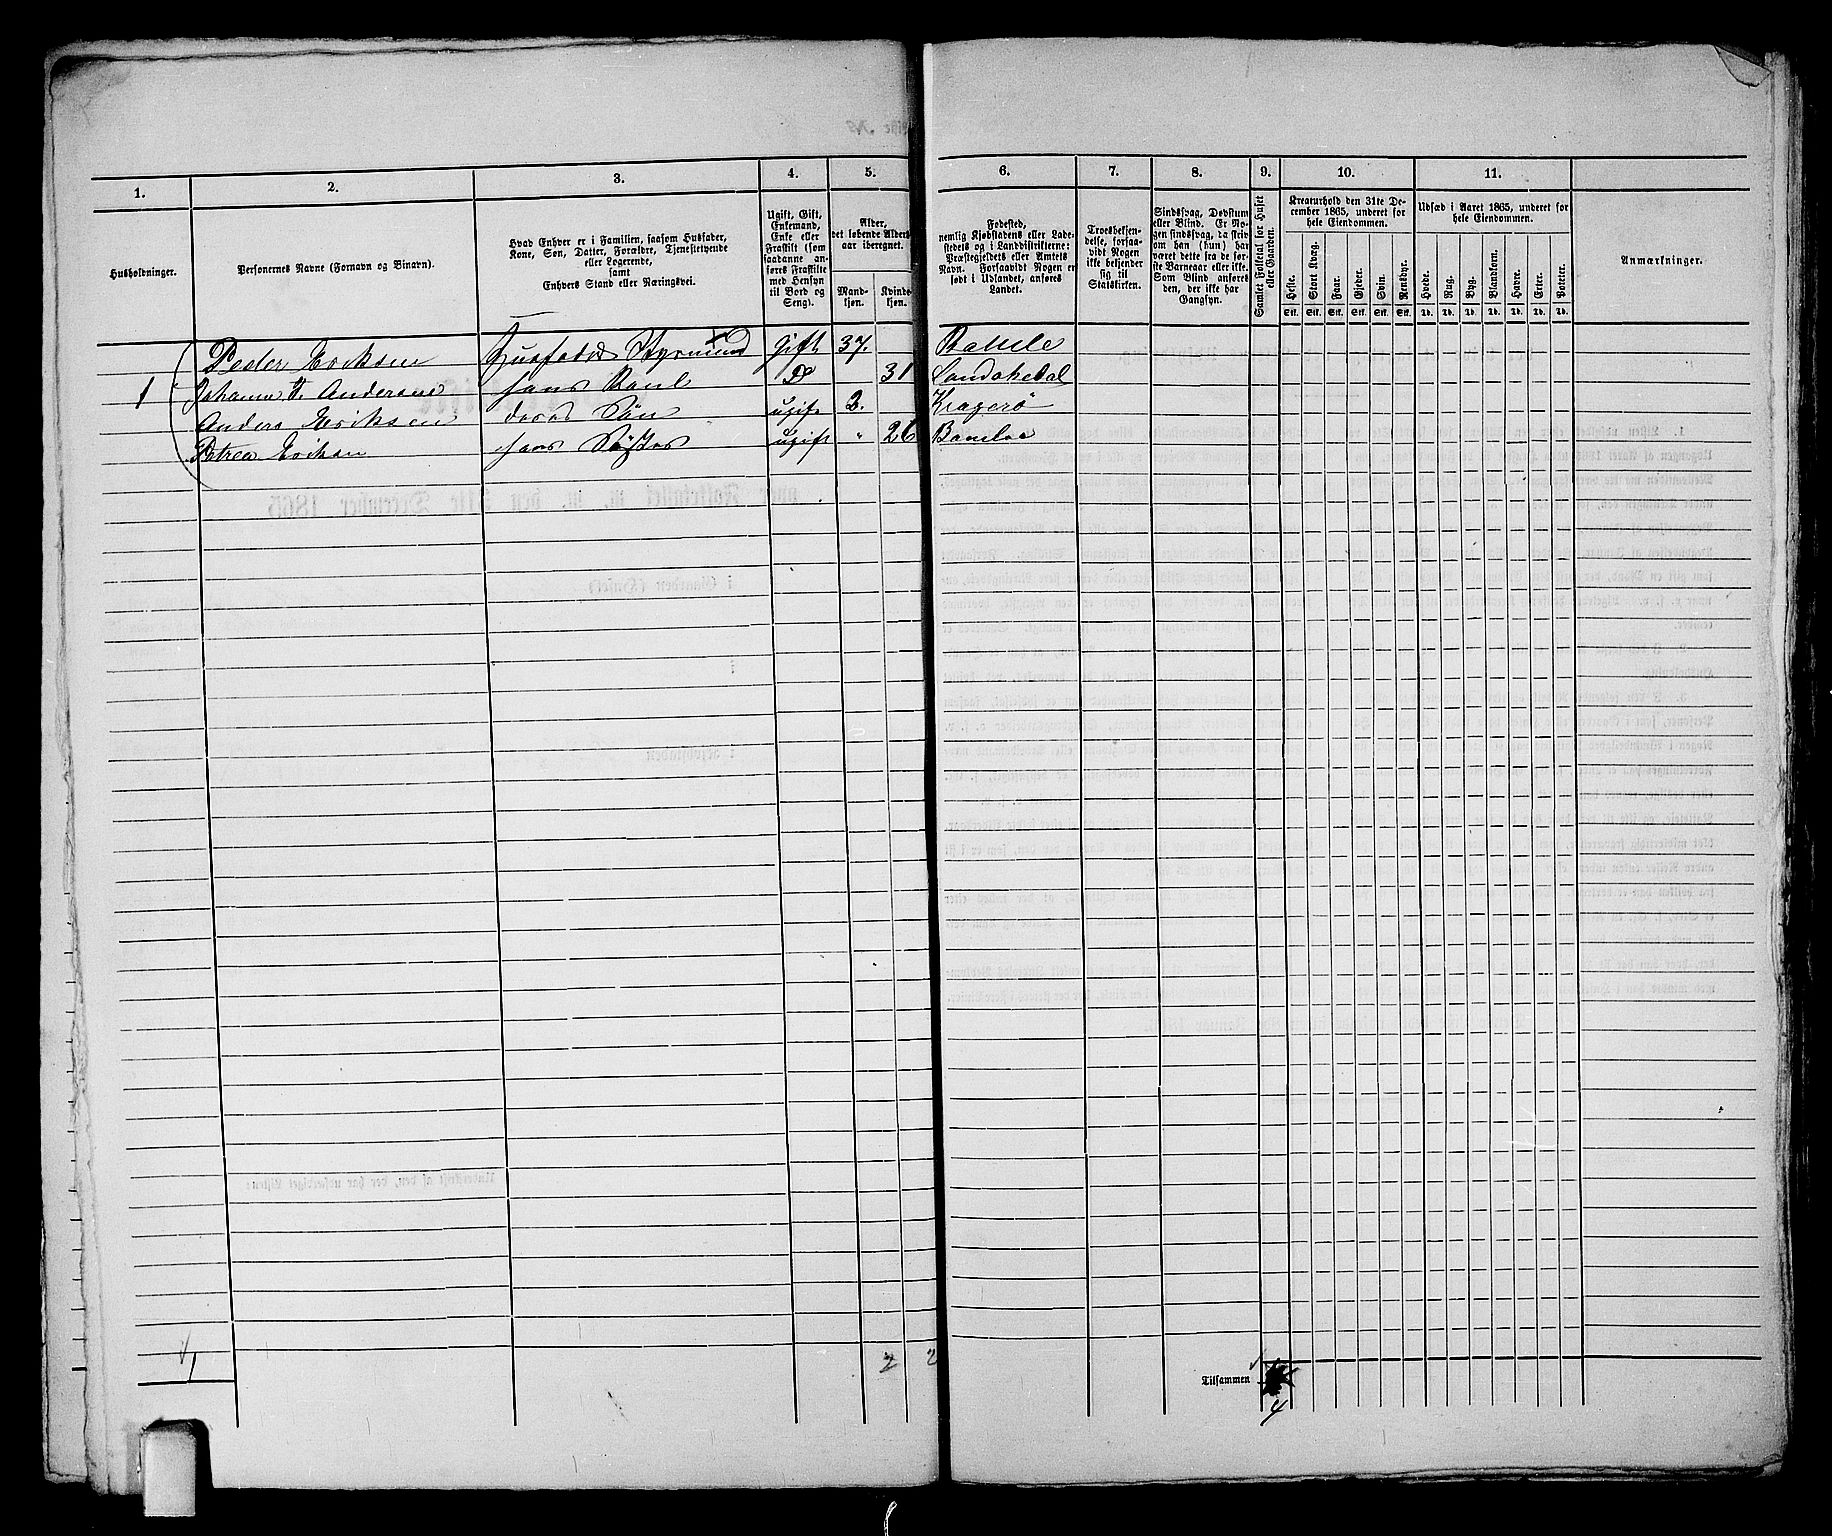 1. 2. 3. 4. 5. 6. 7. 8. 9. 10. 11.
Husholdninger.
Personernes Navne (Fornavn og Binavn).
Hvad Enhver er i Familien, saasom Husfader,
Kone, Søn, Datter, Forældre, Tjenestetyende
eller Logerende,
samt
Enhvers Stand eller Næringsvei.
Ugift, Gift,
Enkemand,
Enke eller
Fraskilt (som
saadanne an-
føres Fraskilte
med Hensyn
til Bord og
Seng).
Alder,
det løbende Alders-
aar iberegnet.
Mand-
kjøn.
Kvinde-
kjøn.
Fødested,
nemlig Kjøbstadens eller Lade-
stedets og i Landdistrikterne:
Præstegjeldets eller Amtets
Navn. Forsaavidt Nogen er
født i Udlandet, anføres
Landet.
Troesbekjen-
delse, forsaa-
vidt Nogen
ikke bekjender
sig til
Statskirken.
Sindssvag, Døvstum
eller Blind. Er No-
gen sindssvag, da skriv
om han (hun) har
været dette fra de før-
ste Barneaar eller ikke.
Som Blind anføres
den, der ikke har
Gangsyn.
Samlet Folketal for Huset
eller Gaarden.
Kreaturhold den 31te De-
cember 1865, underet for
hele Eiendommen.
Heste. Stort Kvæg. Faar. Gjeder. Svin. Rensdyr.
Stk. Stk. Stk. Stk. Stk. Stk.
Udsæd i Aaret 1865, underet for
hele Eiendommen.
Hvede. Rug. Byg. Blandkorn. Havre. Erter. Poteter.
Td. Td. Td. Td. Td. Td. Td.
Anmærkninger.
Peder Eriksen Husfader Styrmand gift 37. Bamle
1 Johanne T. Andersen hans Kone Do 31 Sandøkedal
Anders Eriksen deres Søn ugift 2. Kragerö
Petrea Eriksen hans Søster ugift " 26 Bamle
1 2 2
Tilsammen
4